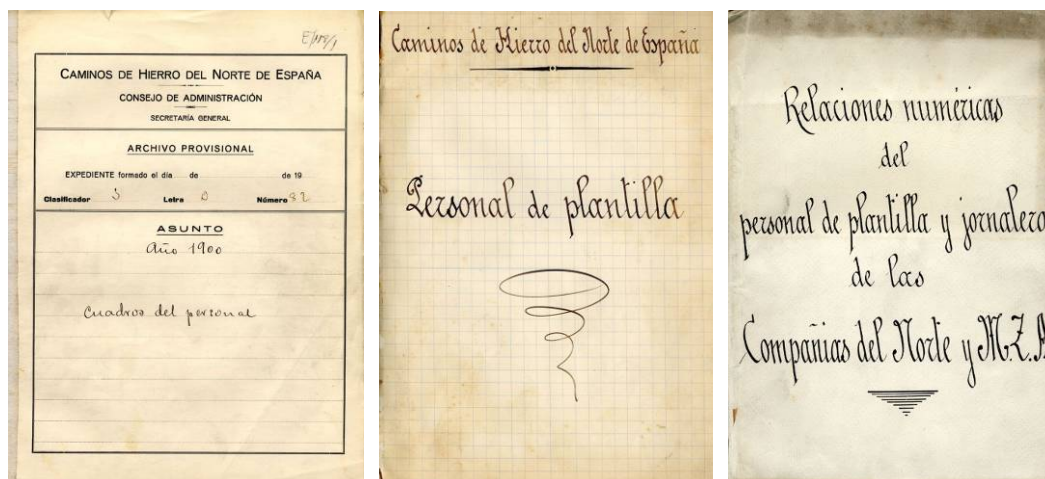 CAMINOS DE HIERRO DEL NORTE DE ESPAÑA
CONSEJO DE ADMINISTRACIÓN
SECRETARÍA GENERAL
ARCHIVO PROVISIONAL
EXPEDIENTE formado el día de de 19
Clasificador S Letra D Número 82
ASUNTO
Año 1900
Cuadros del personal
Caminos de Hierro del Norte de España
Personal de plantilla
Relaciones numéricas
del
personal de plantilla y jornalero
de las
Compañias del Norte y M.Z.A